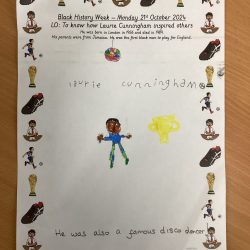 Black History Week – Monday 21st October 2024
LO: To know how Laurie Cunningham inspired others
He was born in London in 1956 and died in 1989.
His parents were from Jamaica. He was the first black man to play for England.
laurie cunningham
He was also a famous disco dancer